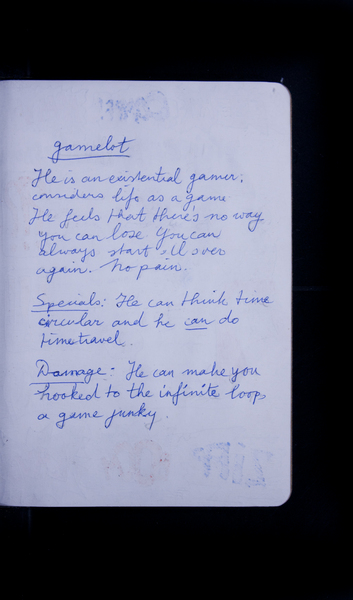 gamelot
He is an existential gamer.
considers life as a game
He feels that there's no way
you can lose. You can
always start all over
again. No pain.
Specials: He can think time
circular and he can do
timetravel.
Damage: He can make you
hooked to the infinite loops
a game junky.